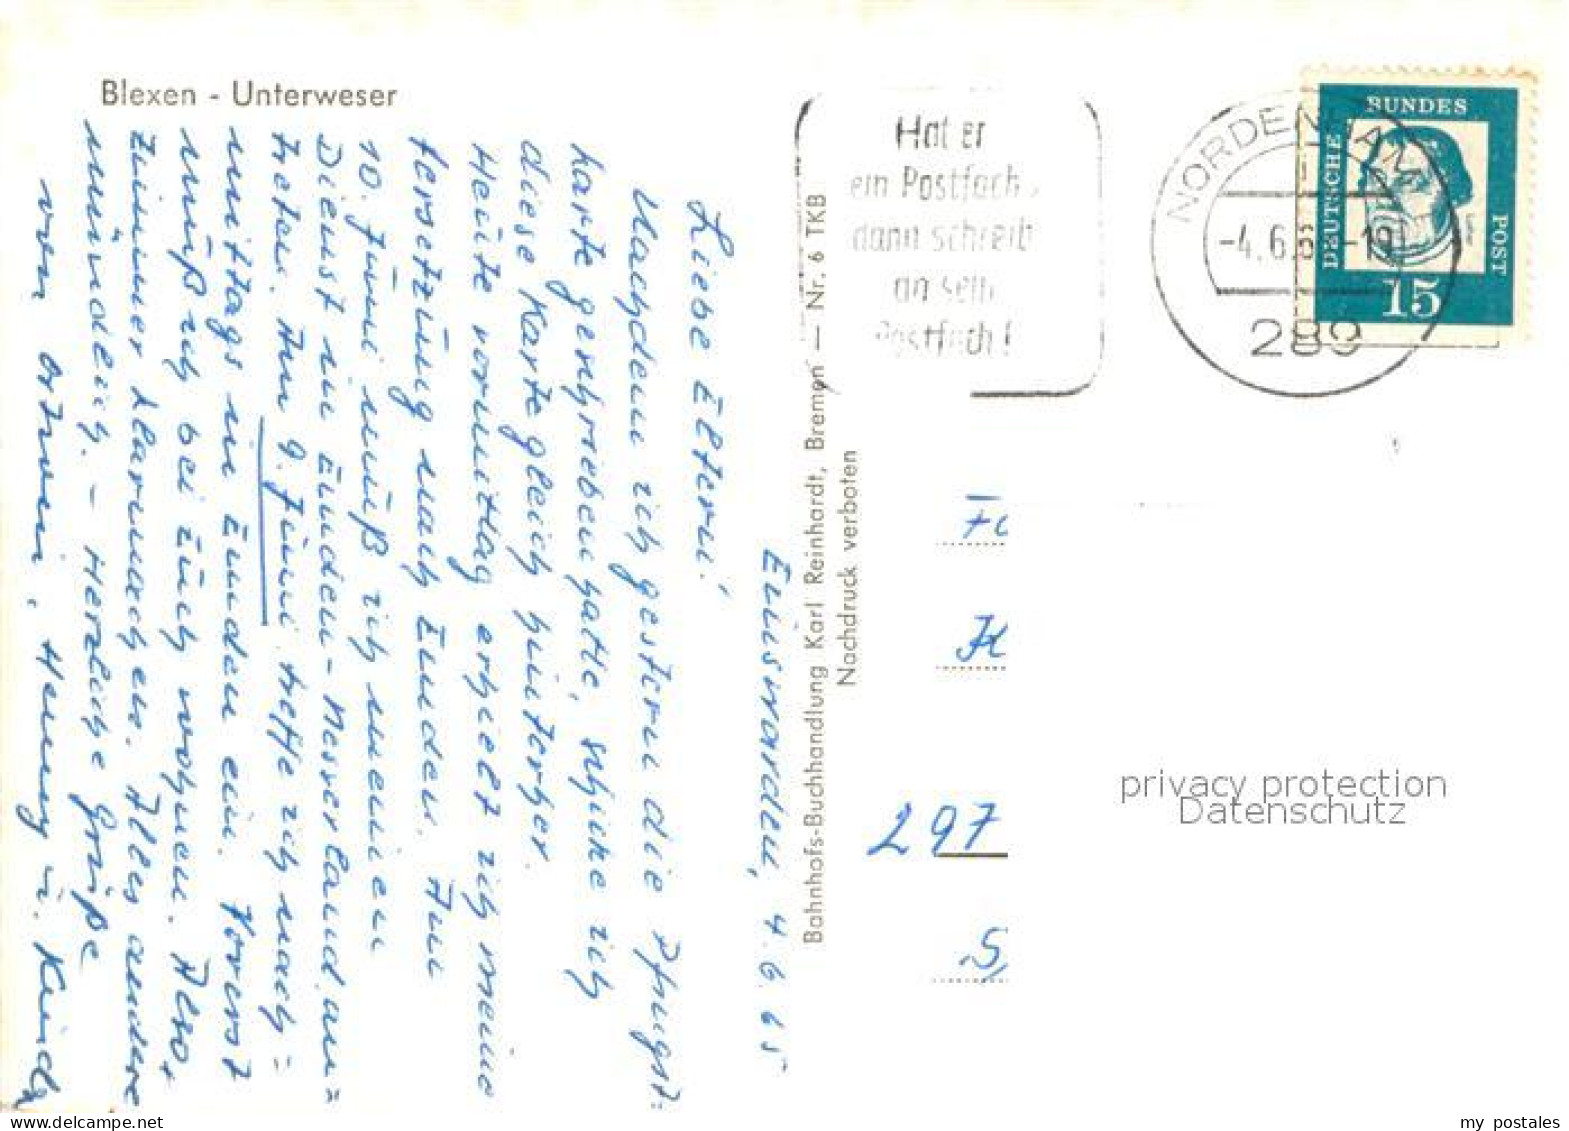 Blexen - Unterweser
Einswarden, 4.6.65
Liebe Eltern!
Nachdem ich gestern die Pfingst=
karte geschrieben hatte, schicke ich
diese Karte gleich hinterher.
Heute vormittag erhielt ich meine
Versetzung nach Emden. Am
10. Juni muß ich meinen
Dienst in Emden-Nesserland an=
treten. Am 9. Juni treffe ich nach=
mittags in Emden ein. Vorerst
muß ich bei Euch wohnen. Also,
Zimmer klarmachen. Alles andere
mündlich. - Herzliche Grüße
von Ortwin, Henny u. Kinder
Bahnhofs-Buchhandlung Karl Reinhardt, Bremen — Nr. 6 TKB
Nachdruck verboten
Hat er
ein Postfach,
dann schreib
an sein
Postfach!
NORDENHAM
-4.6.6 -19
289
DEUTSCHE
BUNDES
POST
15
297
privacy protection
Datenschutz
my postales
www.delcampe.net